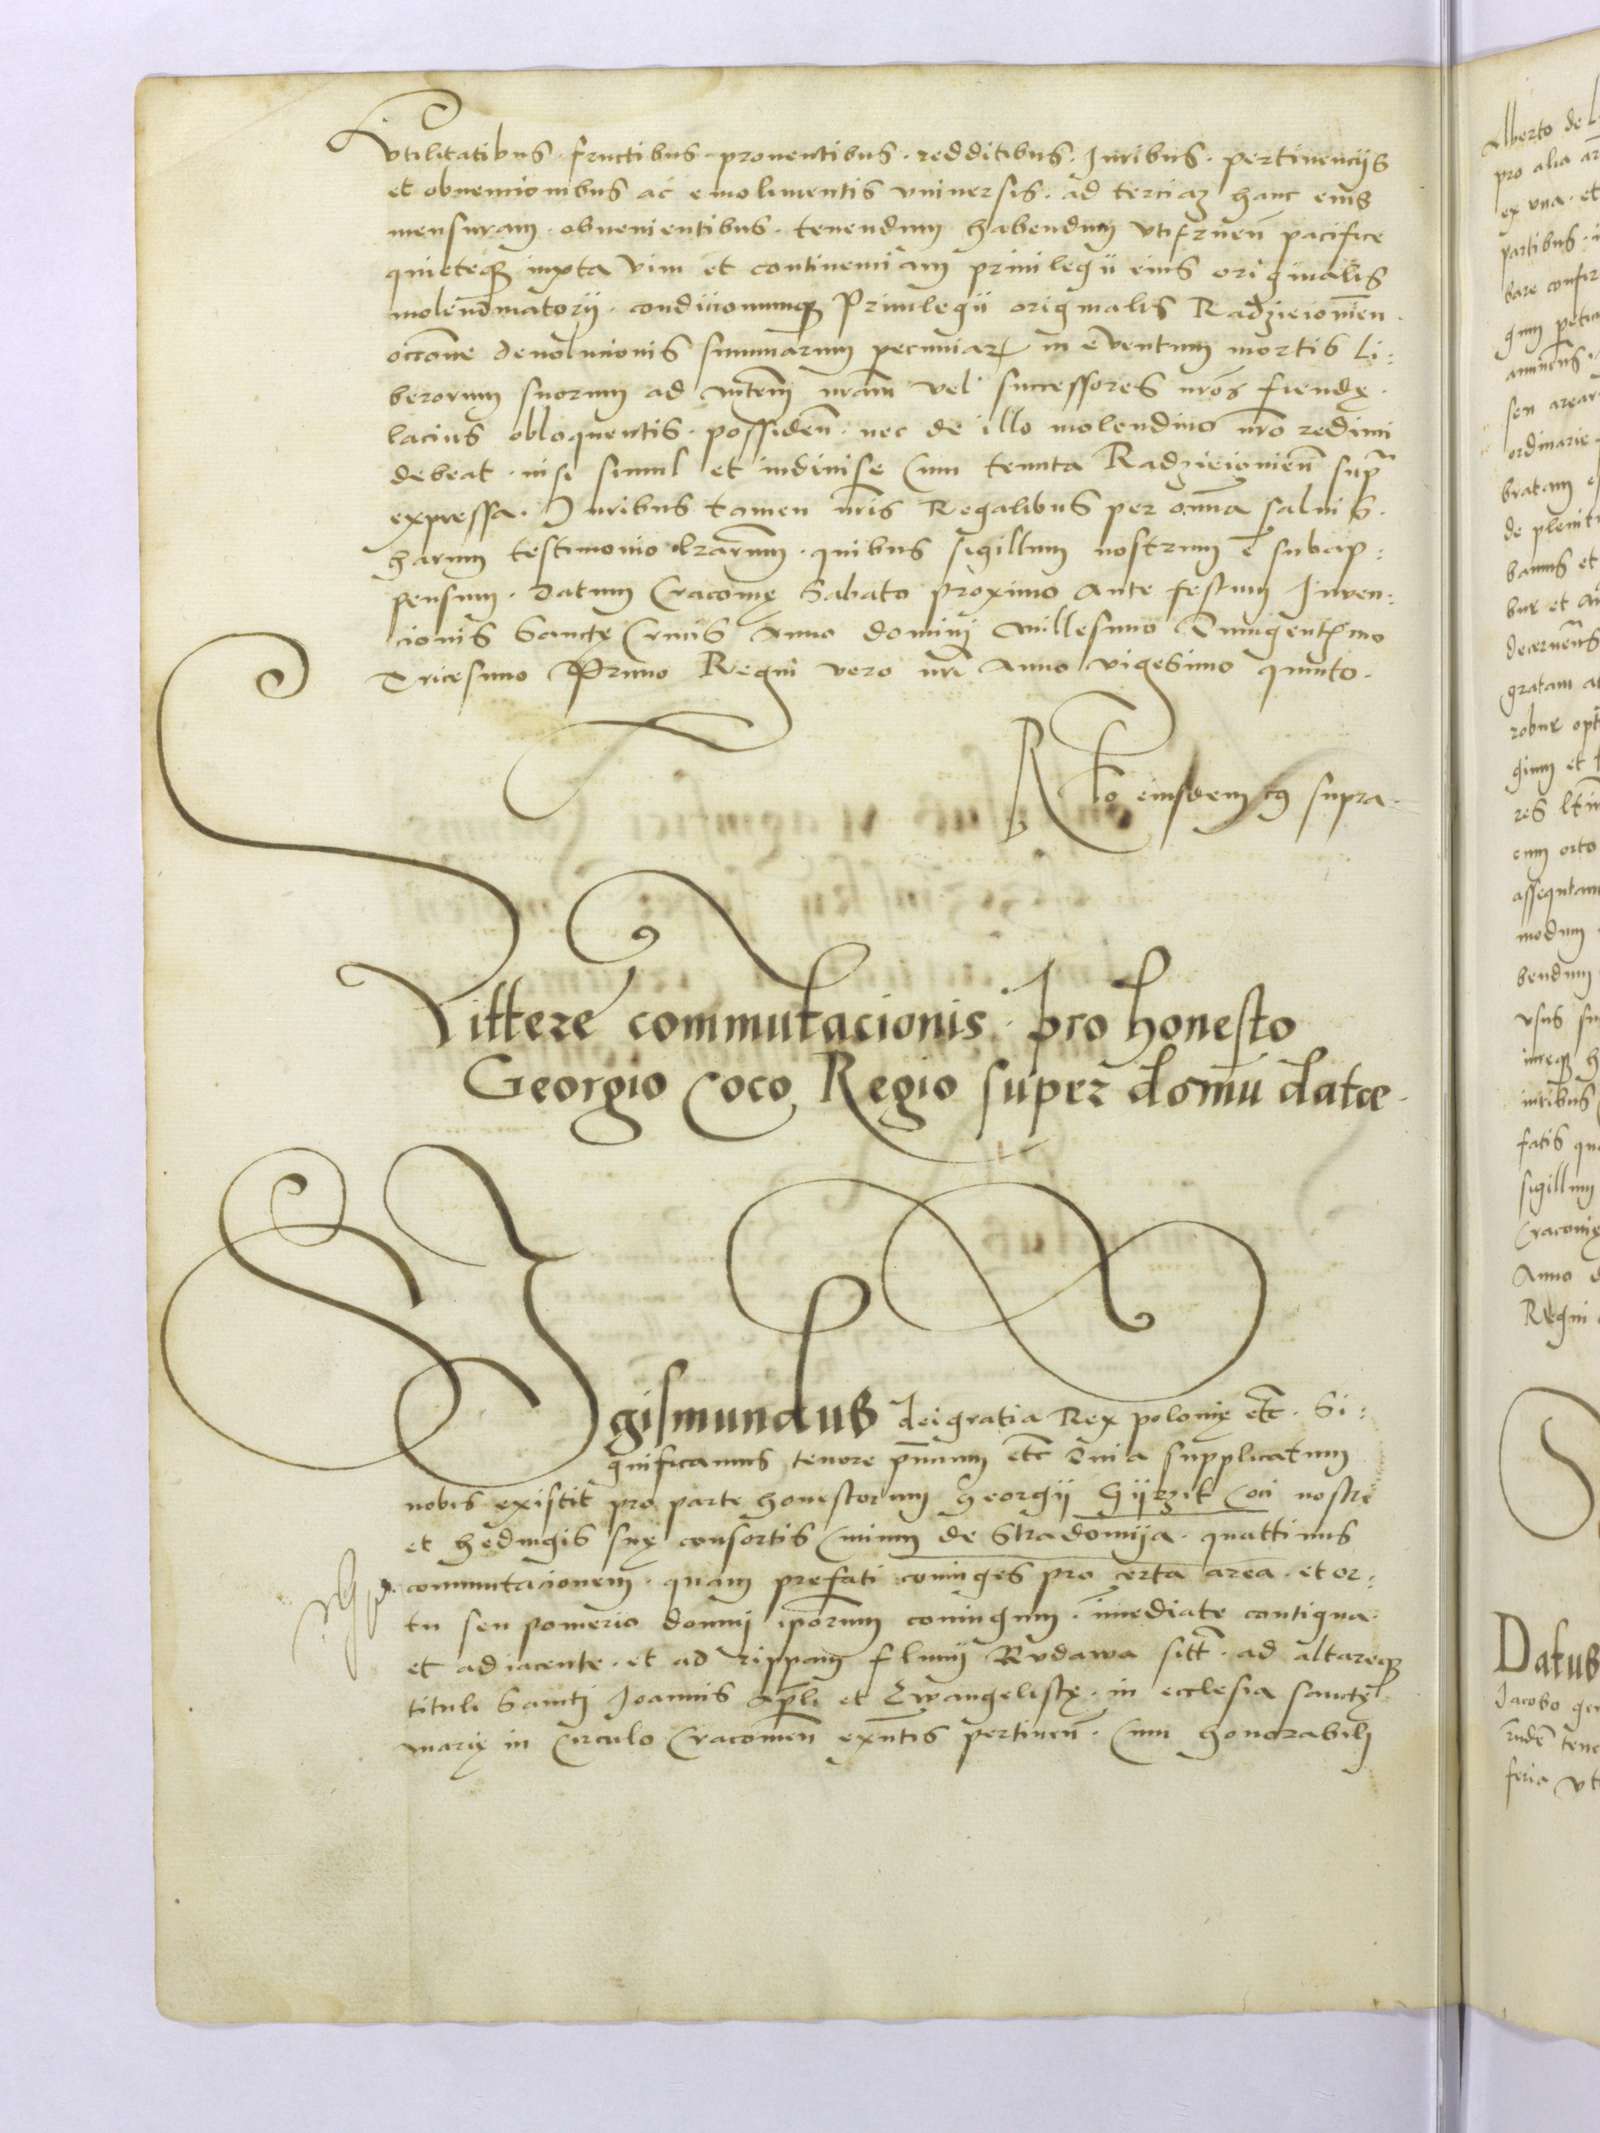 vtilitatibus · fructibus · proventibus · redditibus · Iuribus · pertinencijs
et obvencionibus ac emolimentis vniuersis · ad terciam hanc eius
mensuram · obuenientibus · tenendum habendum vtifruen̄ pacifice
quieteqꝫ iuxta vim et continenciam priuilegii eius originalis
molendinatorij · condicionumqꝫ Priuilegii originalis Radzieiouien̄ ·
occōne deuolucionis summarum pecuniarꝫ in euentum mortis Li:
berorum suorum ad mtem̄ nrām vel successores nrōs fiendę ·
lacius obloquentis · possiden̄ · nec de illo molendino nrō redimi
debeat · nisi simul et indiuise Cum tenuta Radzieiouien̄ supra
expressa · Iuribus tamen nrīs Regalibus per omnia saluis ·
harum testimonio lrārum · quibus sigillum nostrum ē subap:
pensum · datum Cracouię Sabato proximo Ante festum Inuen:
cionis Sanctę Crucis Anno domini Millesimo Quingentesimo
Tricesimo Primo Regni vero nrī Anno vigesimo quinto ·
Rlō eiusdem cꝰ supra ·
Littere commutacionis · pro honesto
Georgio Coco Regio super domū datæ ·
Sigismundus dei gratia Rex polonię etc̄ · Si:
gnificamus tenore pn̄cium etc̄ Quia supplicatum
nobis existit pro parte honestorum Georgij Gijrzik Coci nostri
et hedwigis suę consortis Ciuium de Stradomija · quattinus
commutacionem · quam prefati coniuges pro certa area · et or:
tu seu pomerio domui ipōrum coniugum · īmediate contigua ·
et adiacente · et ad rippam fluuij Rudawa sitt̄ · ad altareqꝫ
tituli Sancti Ioannis Apl̄i et Ewangelistę · in ecclesia sanctę
marię in Circulo Cracouien̄ exn̄tis pertinen̄ · Cum honorabili
Alberto de
pro alia
ex vna · et
partibus ·
bare
seu
ordinarie
bratam
de
bamus et
bur et
decernens
gratam
robur
gium et
res
cum orto
modum
bendum
vsus
iureqꝫ
iuribus
fatis
sigillum
Cracouię
Anno
Regni
Datus
Iacobo
feria